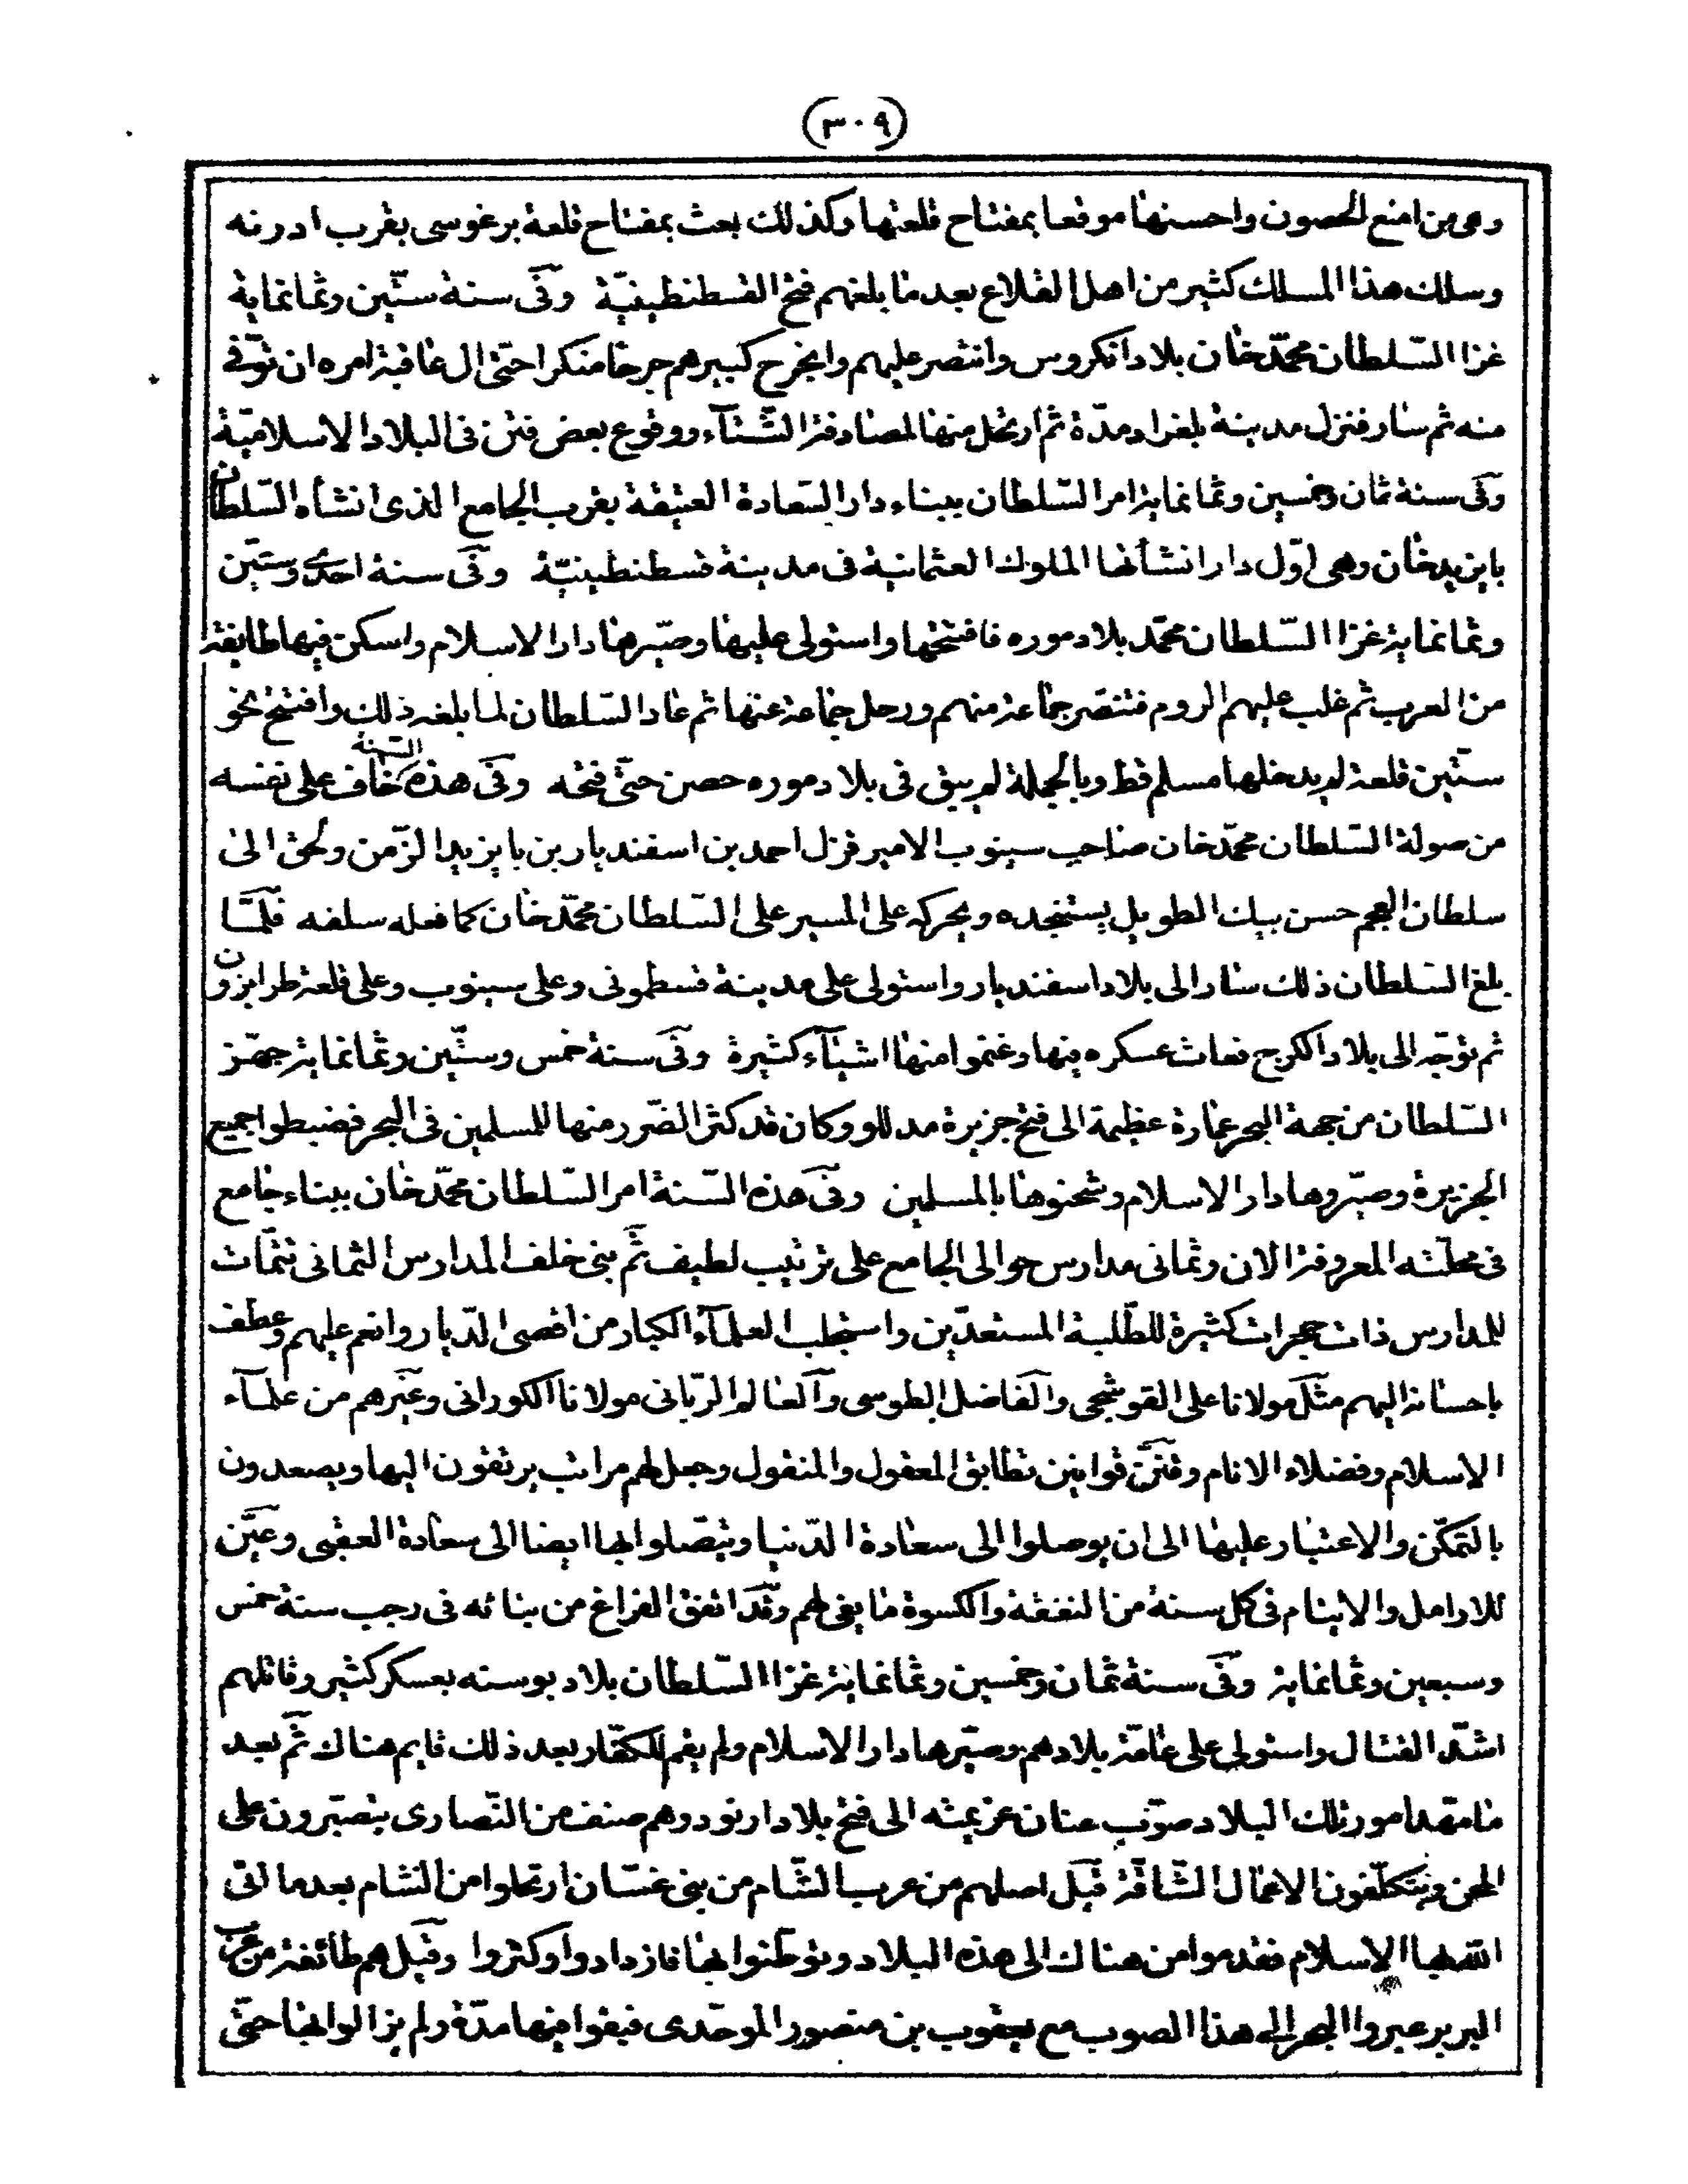 (٣٠٩)
وهى من امنع الحصون واحسنها موقعا بمفتاح قلعتها وكذلك بعث بمفتاح قلعة برغوسى بقرب ادرنه
وسلك هذا المسلك كثير من اهل القلاع بعد ما بلغهم فتح القسطنطينية وفى سنة ستين وثمانماية
غزا السلطان محمد خان بلاد انكروس وانتصر عليهم وانجرح كبيرهم جرحا منكرا حتى ال عاقبة امره ان توفى
منه ثم سار فنزل مدينة بلغراد مدة ثم ارتحل منها لمصادفة الشتاء ووقوع بعض فتن فى البلاد الاسلامية
وفى سنة ثمان وخمسين وثمانماية امر السلطان ببناء دار السعادة العتيقة بقرب الجامع الذى انشأه السلطان
بايزيد خان وهى اول دار انشأتها الملوك العثمانية فى مدينة قسطنطينية وفى سنة احدى وستين
وثمانماية غزا السلطان محمد بلاد موره فافتتحها واستولى عليها وصيرها دار الاسلام واسكن فيها طايفة
من العرب ثم غلب عليهم الروم فتنصر جماعة منهم ورحل جماعة عنها ثم عاد السلطان لما بلغه ذلك وافتتح نحو
ستين قلعة لم يدخلها مسلم قط وبالجملة لم يبق فى بلاد موره حصن حتى فتحه وفى هذه السنة خاف على نفسه
من صولة السلطان محمد خان صاحب سينوب الامير قزل احمد بن اسفنديار بن بايزيد الزمن ولحق الى
سلطان العجم حسن بيك الطويل يستنجده ويحركه على المسير على السلطان محمد خان كما فعله سلفه فلما
بلغ السلطان ذلك سار الى بلاد اسفنديار واستولى على مدينة قسطمونى وعلى سينوب وعلى قلعة طرابزون
ثم توجه الى بلاد الكرج فعاث عسكره فيها وغنموا منها اشياء كثيرة وفى سنة خمس وستين وثمانماية جهز
السلطان من جهة البحر عمارة عظيمة الى فتح جزيرة مدللو وكان قد كثر الضرر منها للمسلمين فى البحر فضبطوا جميع
الجزيرة وصيروها دار الاسلام وشحنوها بالمسلمين وفى هذه السنة امر السلطان محمد خان ببناء جامع
فى محلته المعروفة الان وثمانى مدارس حوالى الجامع على ترتيب لطيف ثم بنى خلف المدارس الثمانى تتمات
للمدارس ذات حجرات كثيرة للطلبة المستعدين واستجلب العلماء الكبار من اقصى الديار وانعم عليهم وعطف
باحسانه اليهم مثل مولانا على القوشجى والفاضل الطوسى والعالم الربانى مولانا الكورانى وغيرهم من علماء
الاسلام وفضلاء الانام وقنن قوانين تطابق المعقول والمنقول وجعل لهم مراتب يرتقون اليها ويصعدون
بالتمكن والاعتبار عليها الى ان يوصلوا الى سعادة الدنيا ويتصلوا بها ايضا الى سعادة العقبى وعين
للارامل والايتام فى كل سنة من النفقة والكسوة ما يفى لهم وقد اتفق الفراغ من بنائه فى رجب سنة خمس
وسبعين وثمانماية وفى سنة ثمان وخمسين وثمانماية غزا السلطان بلاد بوسنه بعسكر كثير وقاتلهم
اشد القتال واستولى على عامة بلادهم وصيرها دار الاسلام ولم يقم للكفار بعد ذلك قايم هناك ثم بعد
ما مهد امور تلك البلاد صوب عنان عزيمته الى فتح بلاد ارنود وهم صنف من النصارى يتصبرون على
المحن ويتكلفون الاعمال الشاقة قيل اصلهم من عرب الشام من بنى غسان ارتحلوا من الشام بعد ما اتى
الله بها الاسلام فقدموا من هناك الى هذه البلاد وتوطنوا بها فازدادوا وكثروا وقيل هم طائفة من عرب
البربر عبروا البحر الى هذا الصوب مع يعقوب بن منصور الموحدى فبقوا فيها مدة ولم يزالوا بها حتى